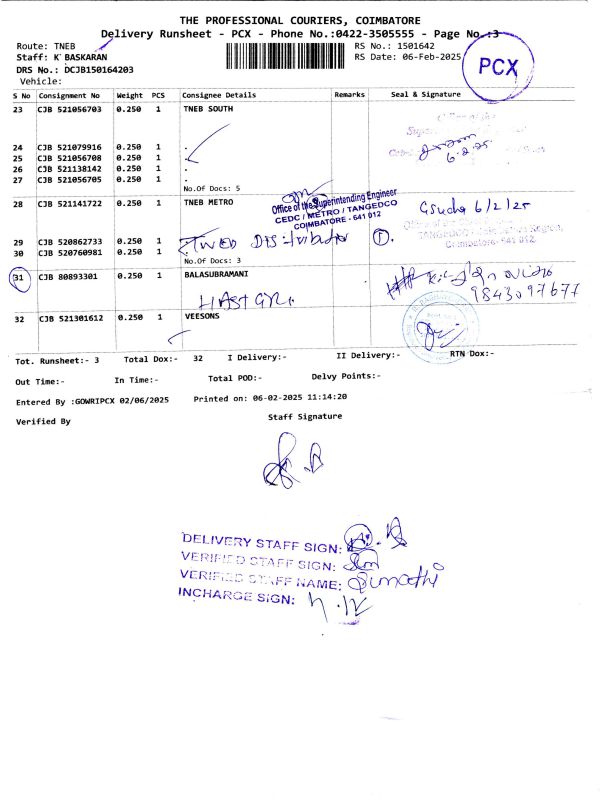 THE PROFESSIONAL COURIERS, COIMBATORE
Delivery Runsheet - PCX - Phone No.:0422-3505555 - Page No.:3
Route: TNEB
RS No.: 1501642
Staff: K BASKARAN
RS Date: 06-Feb-2025
DRS No.: DCJB150164203
Vehicle:
PCX
S No Consignment No Weight PCS Consignee Details Remarks Seal & Signature
23 CJB 521056703 0.250 1 TNEB SOUTH
24 CJB 521079916 0.250 1 .
25 CJB 521056708 0.250 1 .
26 CJB 521138142 0.250 1 .
27 CJB 521056705 0.250 1 .
6.2.25
No.Of Docs: 5
28 CJB 521141722 0.250 1 TNEB METRO
Office of the Superintending Engineer
CEDC / METRO / TANGEDCO
COIMBATORE - 641 012
6/2/25
29 CJB 520862733 0.250 1
30 CJB 520760981 0.250 1
No.Of Docs: 3
31 CJB 80893301 0.250 1 BALASUBRAMANI
9843097677
32 CJB 521301612 0.250 1 VEESONS
Tot. Runsheet:- 3 Total Dox:- 32 I Delivery:- II Delivery:- RTN Dox:-
Out Time:- In Time:- Total POD:- Delvy Points:-
Entered By :GOWRIPCX 02/06/2025 Printed on: 06-02-2025 11:14:20
Verified By Staff Signature
DELIVERY STAFF SIGN:
VERIFIED STAFF SIGN:
VERIFIED STAFF NAME:
INCHARGE SIGN: